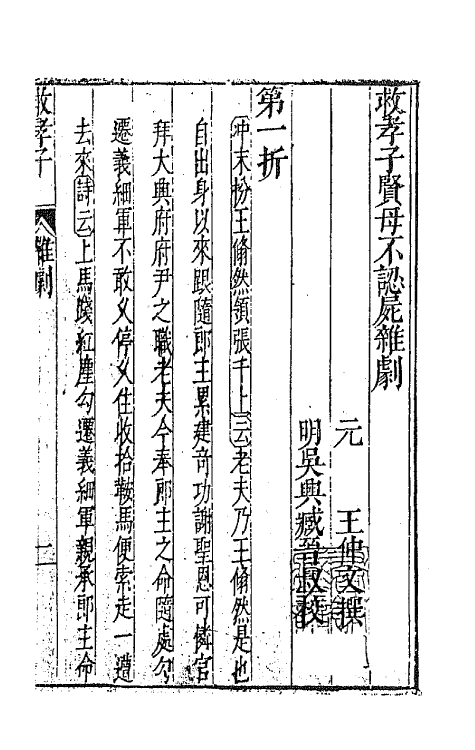 救孝子賢母不認屍雜劇
元 王仲文撰
明吳興臧晉叔校
第一折
沖末扮王翛然領張千上云老夫乃王翛然是也
自出身以來跟隨郎主累建奇功謝聖恩可憐官
拜大興府府尹之職老夫今奉郎主之命隨處勾
遷義細軍不敢久停久住收拾鞍馬便索走一遭
去來詩云上馬踐紅塵勾遷義細軍親承郎主命
救孝子 雜劇 一